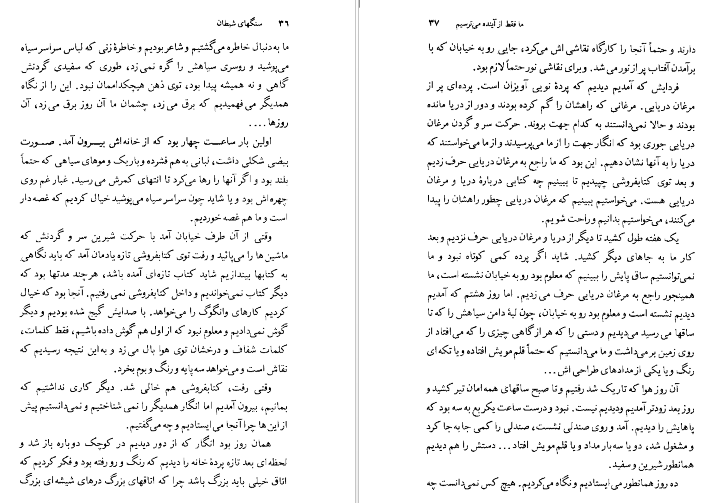 ۳۶ سنگهای شیطان
ما به دنبال خاطره می‌گشتیم و شاعر بودیم و خاطرهٔ زنی که لباس سراسر سیاه
می‌پوشید و روسری سیاهش را گره نمی‌زد، طوری که سفیدی گردنش
گاهی و نه همیشه پیدا بود، توی ذهن هیچکداممان نبود. این را از نگاه
همدیگر می‌فهمیدیم که برق می‌زد، چشمان ما آن روز برق می‌زد، آن
روزها ....
اولین بار ساعت چهار بود که از خانه‌اش بیرون آمد. صورت
بیضی شکلی داشت، لبانی به هم فشرده و باریک و موهای سیاهی که حتماً
بلند بود و اگر آنها را رها می‌کرد تا انتهای کمرش می‌رسید. غبار غم روی
چهره‌اش بود و یا شاید چون سراسر سیاه می‌پوشید خیال کردیم که غصه دار
است و ما هم غصه خوردیم.
وقتی از آن طرف خیابان آمد با حرکت شیرین سر و گردنش که
ماشین ها را می‌پائید و رفت توی کتابفروشی تازه یادمان آمد که باید نگاهی
به کتابها بیندازیم شاید کتاب تازه‌ای آمده باشد، هر چند مدتها بود که
دیگر کتاب نمی‌خواندیم و داخل کتابفروشی نمی رفتیم. آنجا بود که خیال
کردیم کارهای وانگوگ را می‌خواهد. با صدایش گیج شده بودیم و دیگر
گوش نمی‌دادیم و معلوم نبود که از اول هم گوش داده باشیم، فقط کلمات،
کلمات شفاف و درخشان توی هوا بال می‌زد و به این نتیجه رسیدیم که
نقاش است و می‌خواهد سه پایه و رنگ و بوم بخرد.
وقتی رفت، کتابفروشی هم خالی شد. دیگر کاری نداشتیم که
بمانیم، بیرون آمدیم اما انگار همدیگر را نمی شناختیم و نمی‌دانستیم پیش
از این‌ها چرا آنجا می ایستادیم و چه می‌گفتیم.
همان روز بود انگار که از دور دیدیم در کوچک دوباره باز شد و
لحظه ای بعد تازه پردهٔ خانه را دیدیم که رنگ و رو رفته بود و فکر کردیم که
اتاق خیلی باید بزرگ باشد چرا که اتاقهای بزرگ درهای شیشه ای بزرگ
ما فقط از آینده می‌ترسیم ۳۷
دارند و حتماً آنجا را کارگاه نقاشی اش می‌کرد، جایی رو به خیابان که با
برآمدن آفتاب پر از نور می‌شد. و برای نقاشی نور حتماً لازم بود.
فردایش که آمدیم دیدیم که پردهٔ نویی آویزان است. پرده‌ای پر از
مرغان دریایی. مرغانی که راهشان را گم کرده بودند و دور از دریا مانده
بودند و حالا نمی‌دانستند به کدام جهت بروند. حرکت سر و گردن مرغان
دریایی جوری بود که انگار جهت را از ما می‌پرسیدند و از ما می‌خواستند که
دریا را به آنها نشان دهیم. این بود که ما راجع به مرغان دریایی حرف زدیم
و بعد توی کتابفروشی چپیدیم تا ببینیم چه کتابی دربارهٔ دریا و مرغان
دریایی هست. می‌خواستیم ببینیم که مرغان دریایی چطور راهشان را پیدا
می‌کنند، می‌خواستیم بدانیم و راحت شویم.
یک هفته طول کشید تا دیگر از دریا و مرغان دریایی حرف نزدیم و بعد
کار ما به جاهای دیگر کشید. شاید اگر پرده کمی کوتاه نبود و ما
نمی‌توانستیم ساق پایش را ببینیم که معلوم بود رو به خیابان نشسته است، ما
همینجور راجع به مرغان دریایی حرف می زدیم. اما روز هشتم که آمدیم
دیدیم نشسته است و معلوم بود رو به خیابان، چون لبهٔ دامن سیاهش را که تا
ساقها می رسید می‌دیدیم و دستی را که هر از گاهی چیزی را که می‌افتاد از
روی زمین بر می‌داشت و ما می‌دانستیم که حتماً قلم مویش افتاده و یا تکه ای
رنگ و یا یکی از مدادهای طراحی اش...
آن روز هوا که تاریک شد رفتیم و تا صبح ساقهای همه امان تیر کشید و
روز بعد زودتر آمدیم و دیدیم نیست. نبود و درست ساعت یک ربع به سه بود که
پاهایش را دیدیم. آمد و روی صندلی نشست، صندلی را کمی جا به جا کرد
و مشغول شد، دو یا سه بار مداد و یا قلم مویش افتاد... دستش را هم دیدیم
همانطور شیرین و سفید.
ده روز همانطور می ایستادیم و نگاه می‌کردیم. هیچ کس نمی‌دانست چه